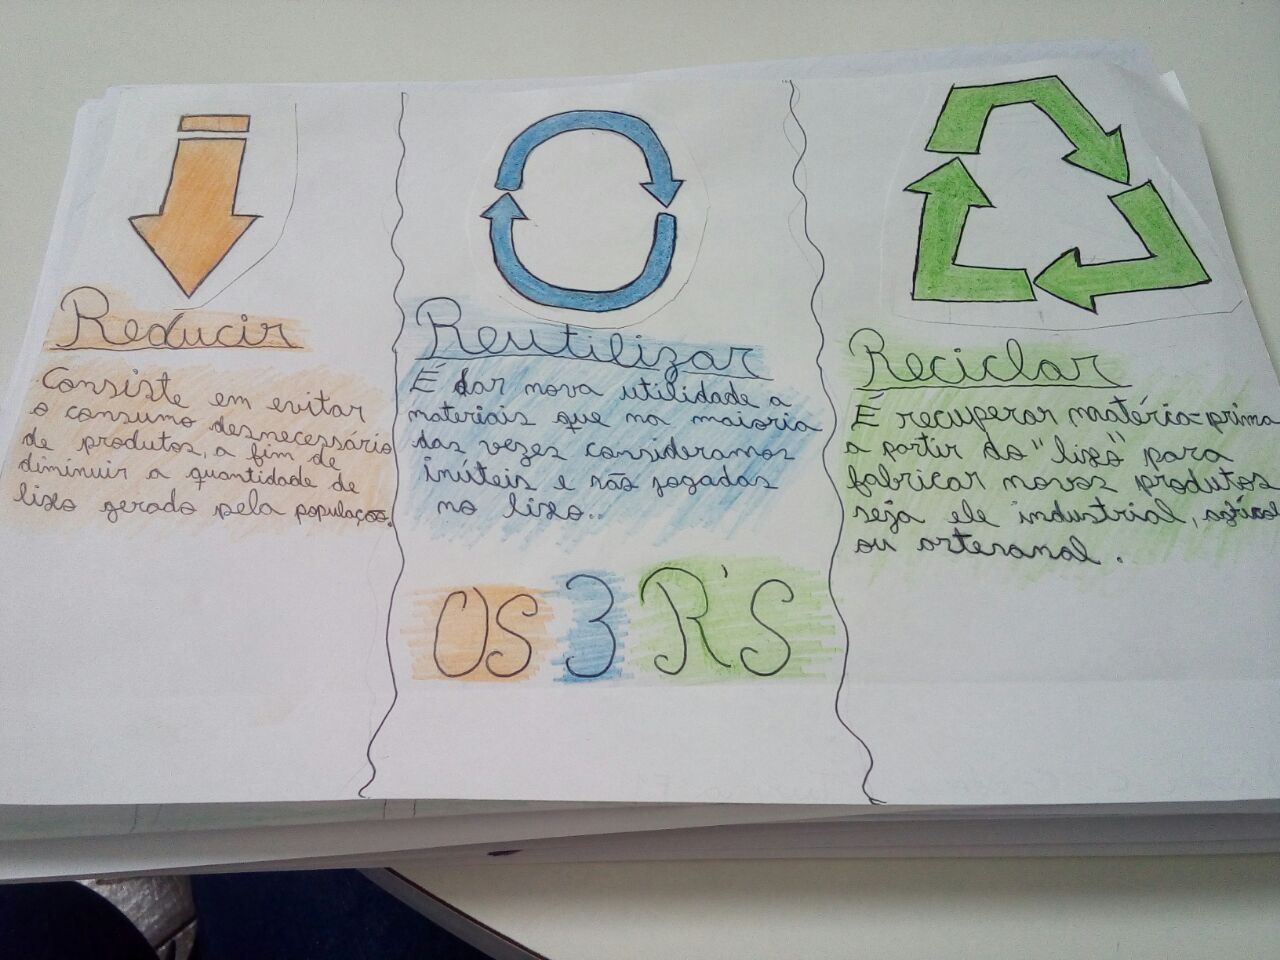 Reducir
Consiste em evitar
o consumo desnecessário
de produtos, a fim de
diminuir a quantidade de
lixo gerado pela população.
Reutilizar
É dar nova utilidade a
materiais que na maioria
das vezes consideramos
inúteis e são jogadas
no lixo..
Reciclar
É recuperar matéria-prima
a partir do "lixo" para
fabricar novos produtos
seja ele industrial,
ou artesanal.
OS 3 R'S